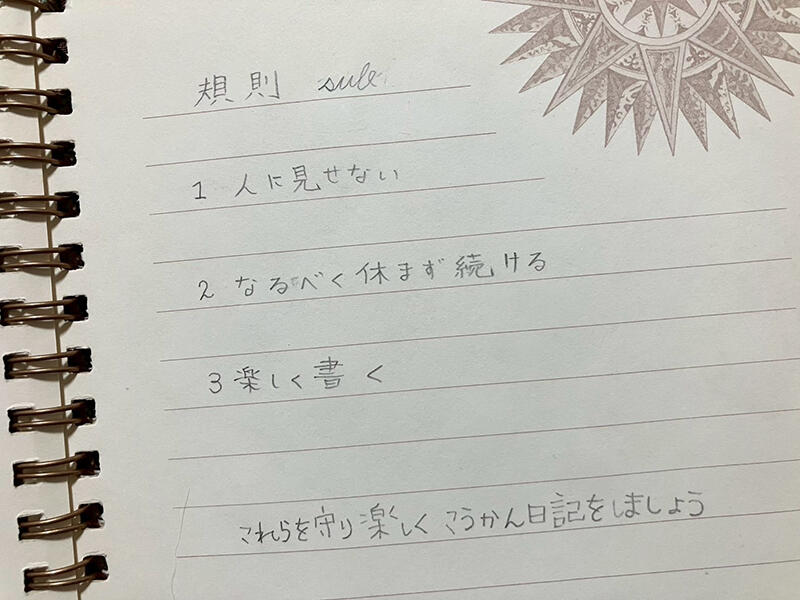 規則 sule
1 人に見せない
2 なるべく休まず続ける
3 楽しく書く
これらを守り楽しくこうかん日記をしましょう